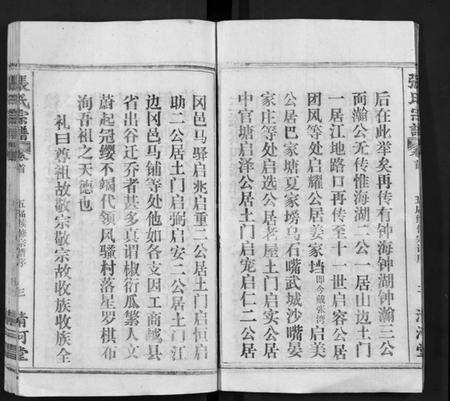 張氏宗譜
卷首
清河堂
后在此举矣再传有钟海钟湖钟瀚三公
而瀚公无传惟海湖二公一居山边土门
一居江地路口再传至十一世启容公居
团风等处启耀公居姜家垱即今戴张湾启美
公居巴家塘夏家塝乌石嘴武城沙嘴晏
家庄等处启选公居老屋土门启实公居
中官塘启泽公居土门启宠启仁二公居
冈邑马驿启兆启重二公居土门启恒启
助二公居土门启弼启安二公居土门江
边冈邑马铺等处他如各支因工商越县
省出谷迁乔者甚多真谓椒衍瓜繁人文
蔚起冠缨不竭代领风骚村落星罗棋布
洵吾祖之天德也
礼曰尊祖故敬宗敬宗故收族收族全
張氏宗譜
卷首
五届
三
清河堂